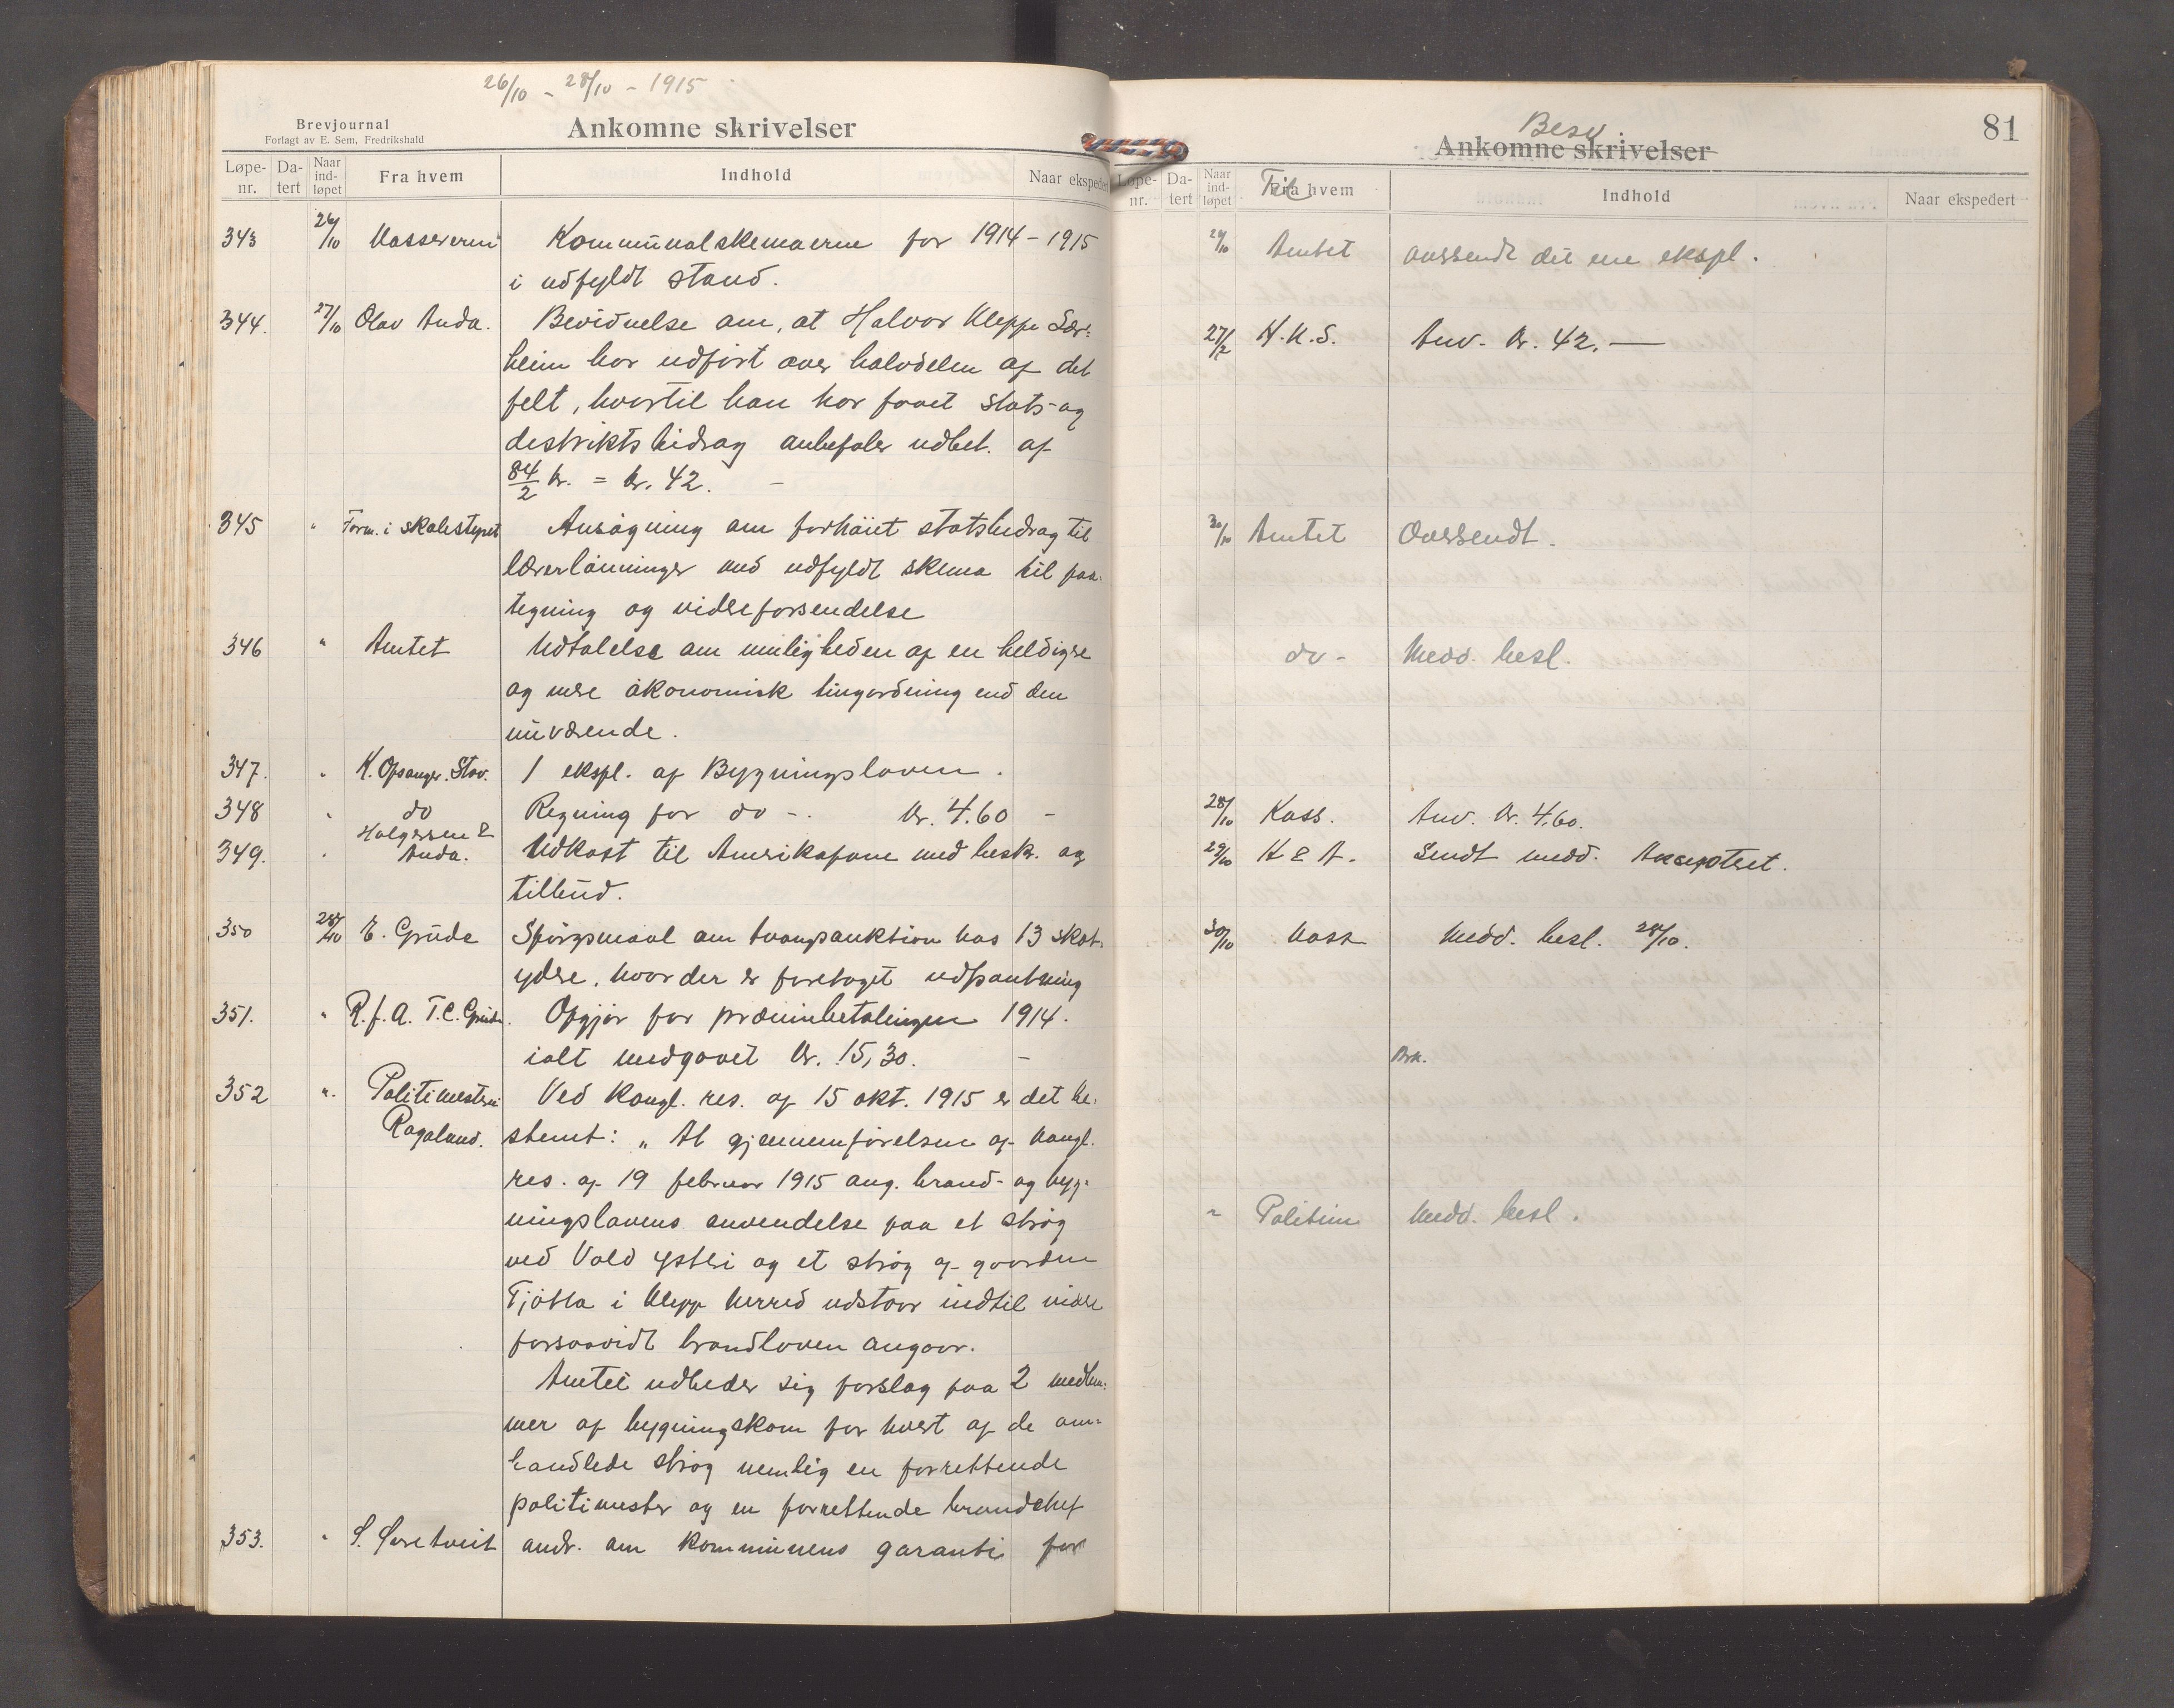 26/10 - 28/10 - 1915
Brevjournal
Forlagt av E. Sem, Fredrikshald
Ankomne skrivelser
Løpe-nr. Da-tert Naar ind-løpet Fra hvem Indhold Naar ekspedert
343 26/10 Kassereren Kommunalskemaerne for 1914-1915
i udfyldt stand.
344. 27/10 Olav Anda. Bevidnelse om, at Halvor Kleppe Sær-
heim har udført over halvdelen af det
felt, hvortil han har faaet stats- og
destriktsbidrag anbefaler udbet. af
84/2 kr. = kr. 42. -
345 " Form. i skolestyret Ansøgning om forhøiet statsbidrag til
lærerlønninger med udfyldt skema til paa-
tegning og videreforsendelse
346 " Amtet Udtalelse om muligheden af en heldigere
og mere økonomisk tingordning end den
nuværende.
347. " K. Opsanger. Stav. 1 ekspl. af Bygningsloven.
348 " do Regning for do -. kr. 4.60 -
349. " Holgersen & Anda. Udkast til Amerikafane med beskr. og
tilbud.
350 28/10 E. Grude Spørgsmaal om tvangsauktion hos 13 skat-
ydere, hvor der er foretaget udpantning
351. " R.f.A. T.C. Grude. Opgjør for præmiebetalingen 1914.
ialt medgaaet kr. 15,30. -
352 " Politimesteri Rogaland. Ved kongl. res. af 15 okt. 1915 er det be-
stemt: „ At gjennemførelsen af kongl.
res. af 19 februar 1915 ang. brand- og byg-
ningslovens anvendelse paa et strøg
ved Vold ysteri og et strøg af gaarden
Tjøtta i Klepp herred udstaar indtil videre
forsaavidt brandloven angaar.
Amtet udbeder sig forslag paa 2 medlem-
mer af bygningskom for hvert af de om-
handlede strøg nemlig en forrettende
politimester og en forrettende brandchef
353. " S. Særetveit andr. om kommunens garanti for
81
Besv.
Ankomne skrivelser
Løpe-nr. Da-tert Naar ind-løpet Fra hvem Til Indhold Naar ekspedert
29/10 Amtet oversendt det ene ekspl.
27/12 H.K.S. Anv. kr. 42.—
30/10 Amtet Oversendt.
do - Medd. besl.
28/10 Kass. Anv. kr. 4.60.
29/10 H & A. Sendt medd. Accepteret.
30/10 Kass Medd. besl. 28/10.
" Politim Medd. besl.